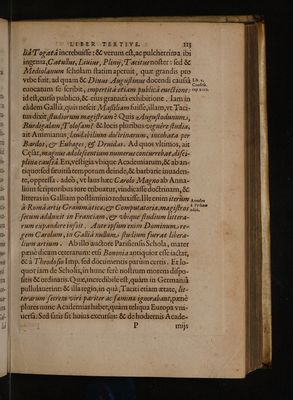 LIBER TERTIVS. 113
liâ Togatâ increbuisse: & verum est, ac pulcherrima ibi
ingenia, Catullus, Liuius, Plinij, Tacitus noster: sed &
Mediolanum scholam statim aperuit, quæ grandis pro
vrbe fuit. ad quam & Diuus Augustinus docendi caussâ
euocatum se scribit, impertitâ etiam publicâ euectione:
id est, cursu publico, & eius gratuitâ exhibitione. Iam in
eâdem Gallia, quis nescit Massiliam fuisse, sedem, vt Taci-
tus dixit, studiorum magistram? Quis Augustodunum,
Burdigalam, Tolosam? & locis pluribus viguêre studia,
ait Ammianus, laudabilium doctrinarum, inchoata per
Bardos, & Euhages, & Druidas. Ad quos vltimos, ait
Cæsar, magnus adolescentium numerus concurrebat, disci-
plinæ caussâ. En, vestigia vbique Academiarum, & ab an-
tiquo: sed fatiuit temporum deinde, & barbarie inuaden-
te, oppressa. adeò, vt laus hæc Carolo Magno ab Anna-
lium scriptoribus iure tribuatur, vindicasse doctrinam, &
litteras in Galliam postliminio reduxisse. Ille enim iterùm
à Româ artis Grammaticæ, & Computatoriæ, magistros
secum adduxit in Franciam, & vbique studium littera-
rum expandere iussit. Ante ipsum enim Dominum, re-
gem Carolum, in Galliâ nullum studium fuerat libera-
lium artium. Ab illo auctore Parisiensis Schola, mater
pænè dicam ceterarum: etsi Bononia antiquior esse iactat,
& à Theodosio Imp. sed documentis parùm certis. Et ha-
ctenus de Scholis, in hunc ferè nostrum morem dispo-
sitis & ordinatis. Quæ, incredibile est, quàm in Germaniâ
pullulauerint: & illa regio, in quâ, Taciti etiam ætate, lit-
terarum secreta viri pariter ac fæminæ ignorabant, pænè
plures nunc Academias habet, quàm reliqua Europa vni-
uersa. Sed satis sit huius excursus: & de hodiernis Acade-
P
mijs